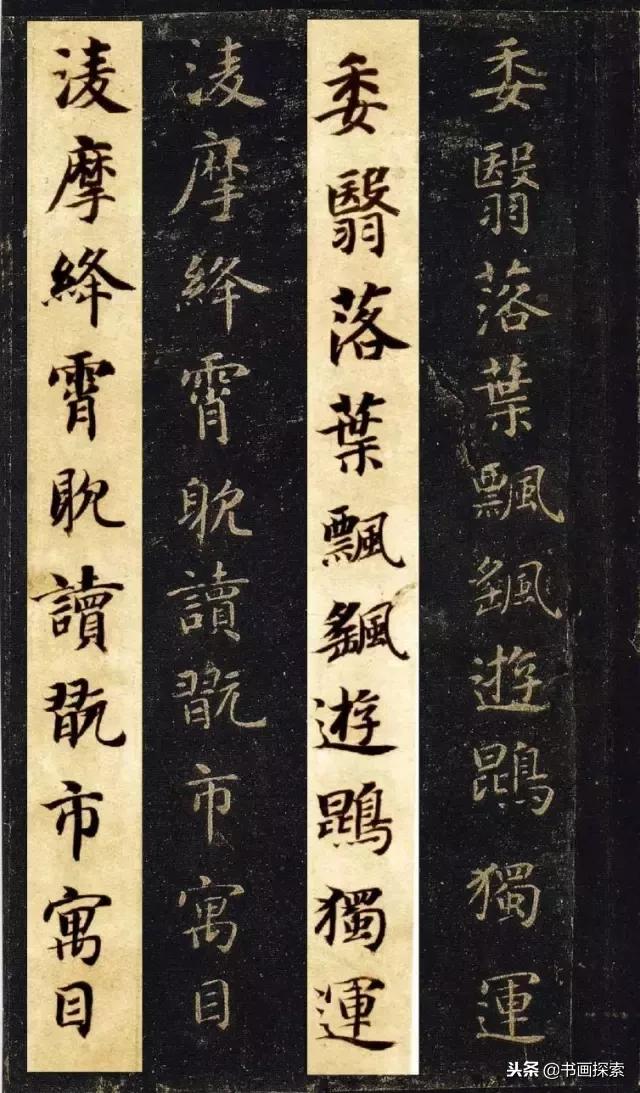 委翳落葉飄颻遊鵾獨運
委翳落葉飄颻遊鵾獨運
淩摩絳霄耽讀翫市寓目
淩摩絳霄耽讀翫市寓目
头条 @书画探索